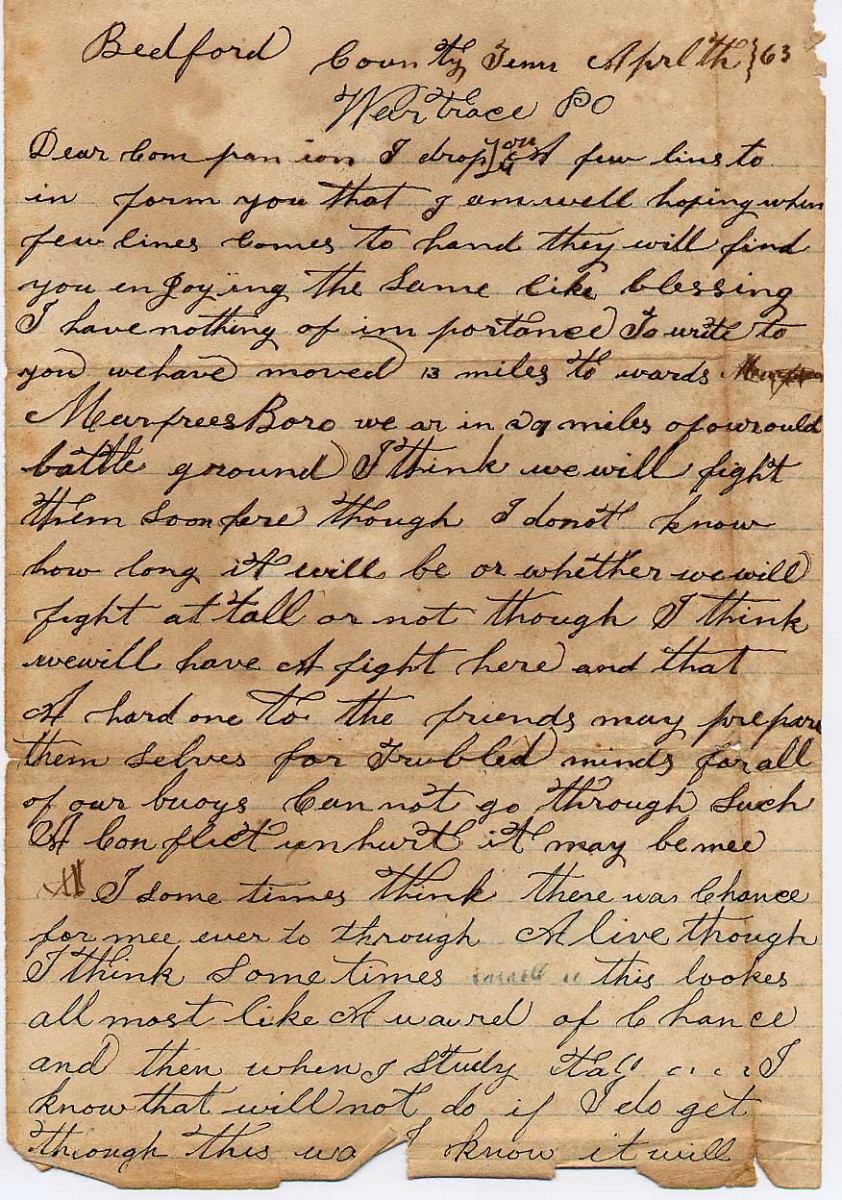 Bedford County Tenn Aprl th }63
Weartrace PO
Dear Com pan ion I drop you A few lins to
in form you that I am well hoping when
few lines Comes to hand they will find
you en Joying the Same like blessing
I have nothing of im portance To write to
you we have moved 13 miles to wards
Murfrees Boro we ar in 29 miles of our ould
battle ground I think we will fight
them Soon here though I do not know
how long it will be or whether we will
fight at tall or not though I think
we will have A fight here and that
A hard one To the friends may prepare
them Selves for Trubled minds for all
of our buoys Can not go through Such
A Con flict un hurt it may be mee
I some times think there was Chance
for mee ever to through A live though
I think Some times this lookes
all most like A ward of Chance
and then when I study it all I
know that will not do if I do get
through this wa I know it will